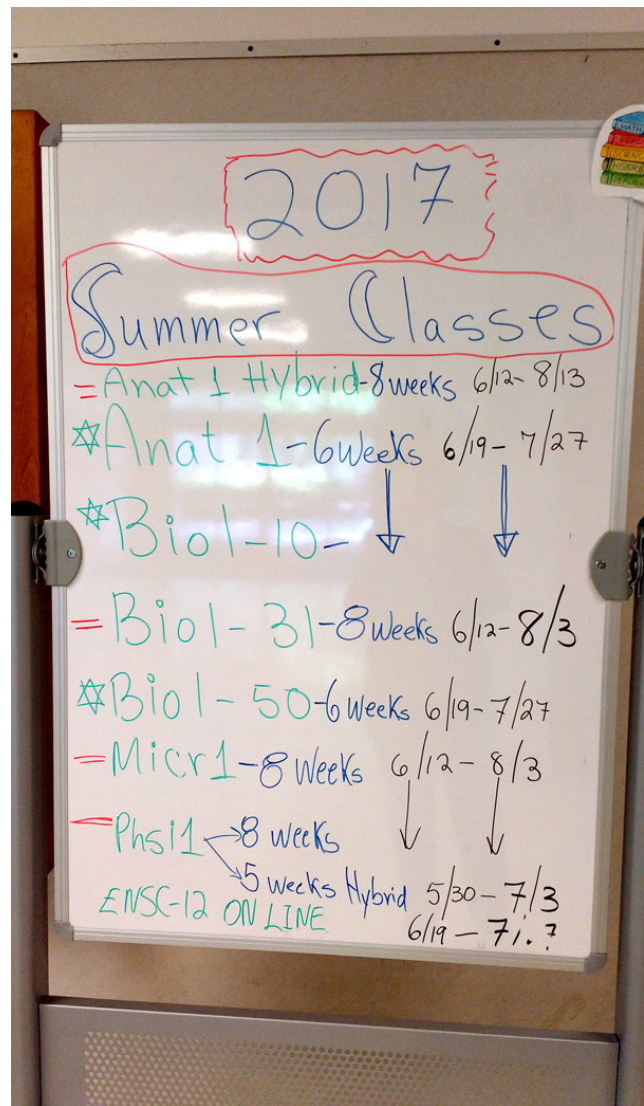 2017
Summer Classes
= Anat 1 Hybrid-8weeks 6/12-8/13
Anat 1-6weeks 6/19-7/27
Biol-10-
= Biol-31-8weeks 6/12-8/3
Biol-50-6weeks 6/19-7/27
= Micr1-8 weeks 6/12-8/3
= Phsi1 8 weeks
5 weeks Hybrid 5/30-7/3
ENSC-12 ON LINE 6/19-7/.?
MATH
READ
SCIENC
HISTORY